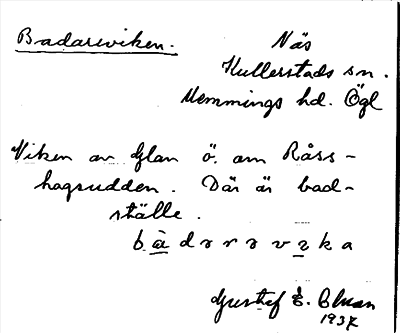 Badareviken.
Näs
Kullerstads sn.
Memmings hd. Ögl
Viken av Glan ö. om Råss-
hagsudden. Där är bad-
ställe.
bàdərəvıka
Gustaf E.
1937